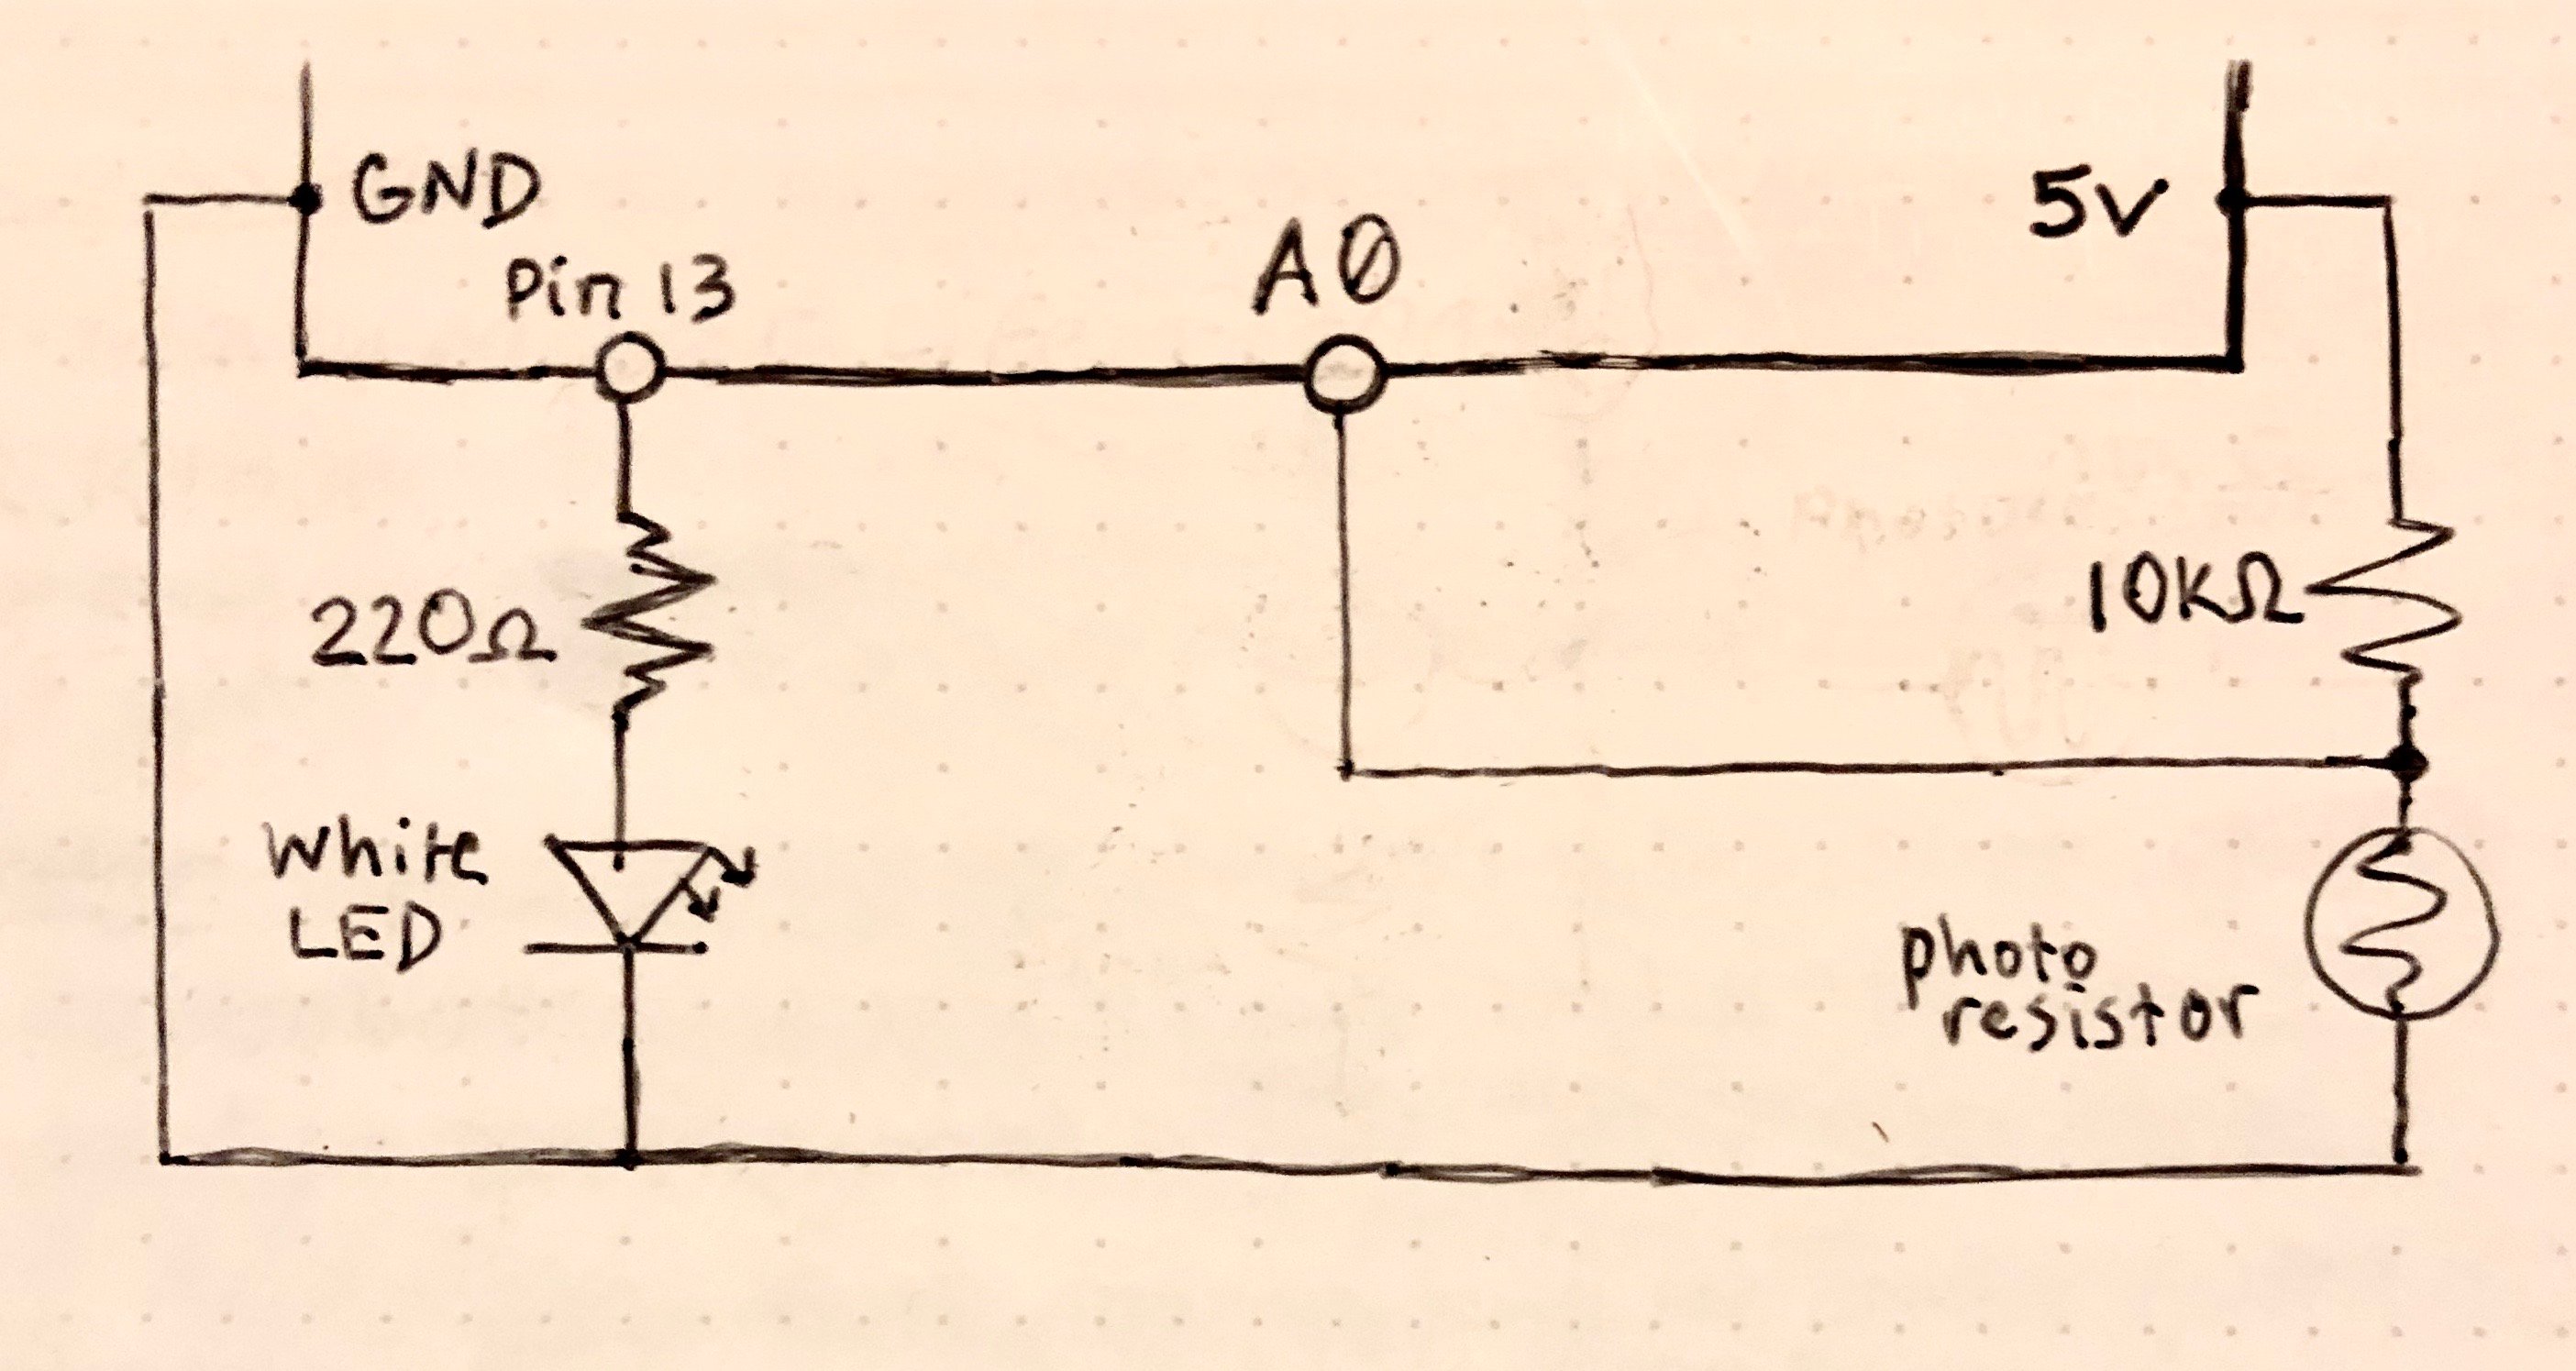 GND
Pin 13
AØ
5V
220Ω
10KΩ
White
LED
photo
resistor